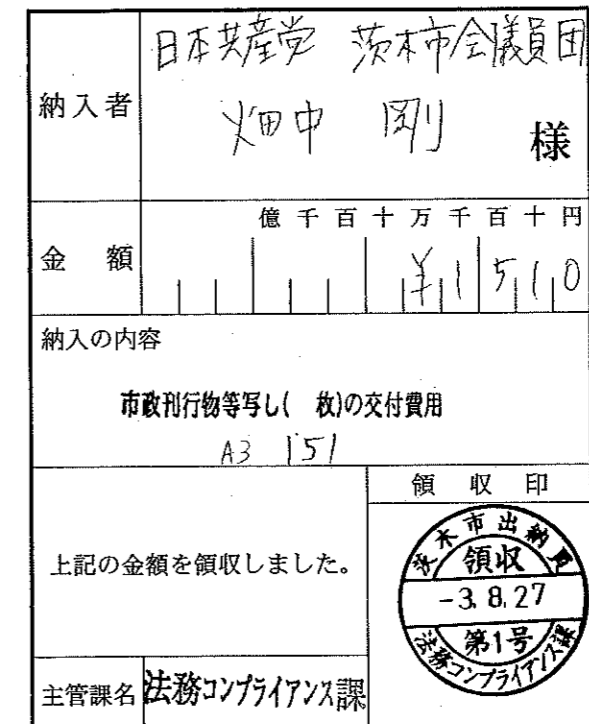 日本共産党 茨木市会議員団
納入者
畑中 剛
様
億千百十万千百十円
金 額
¥1510
納入の内容
市政刊行物等写し( 枚)の交付費用
A3 151
領収印
上記の金額を領収しました。
茨木市出納員
領収
-3.8.27
第1号
法務コンプライアンス課
主管課名 法務コンプライアンス課